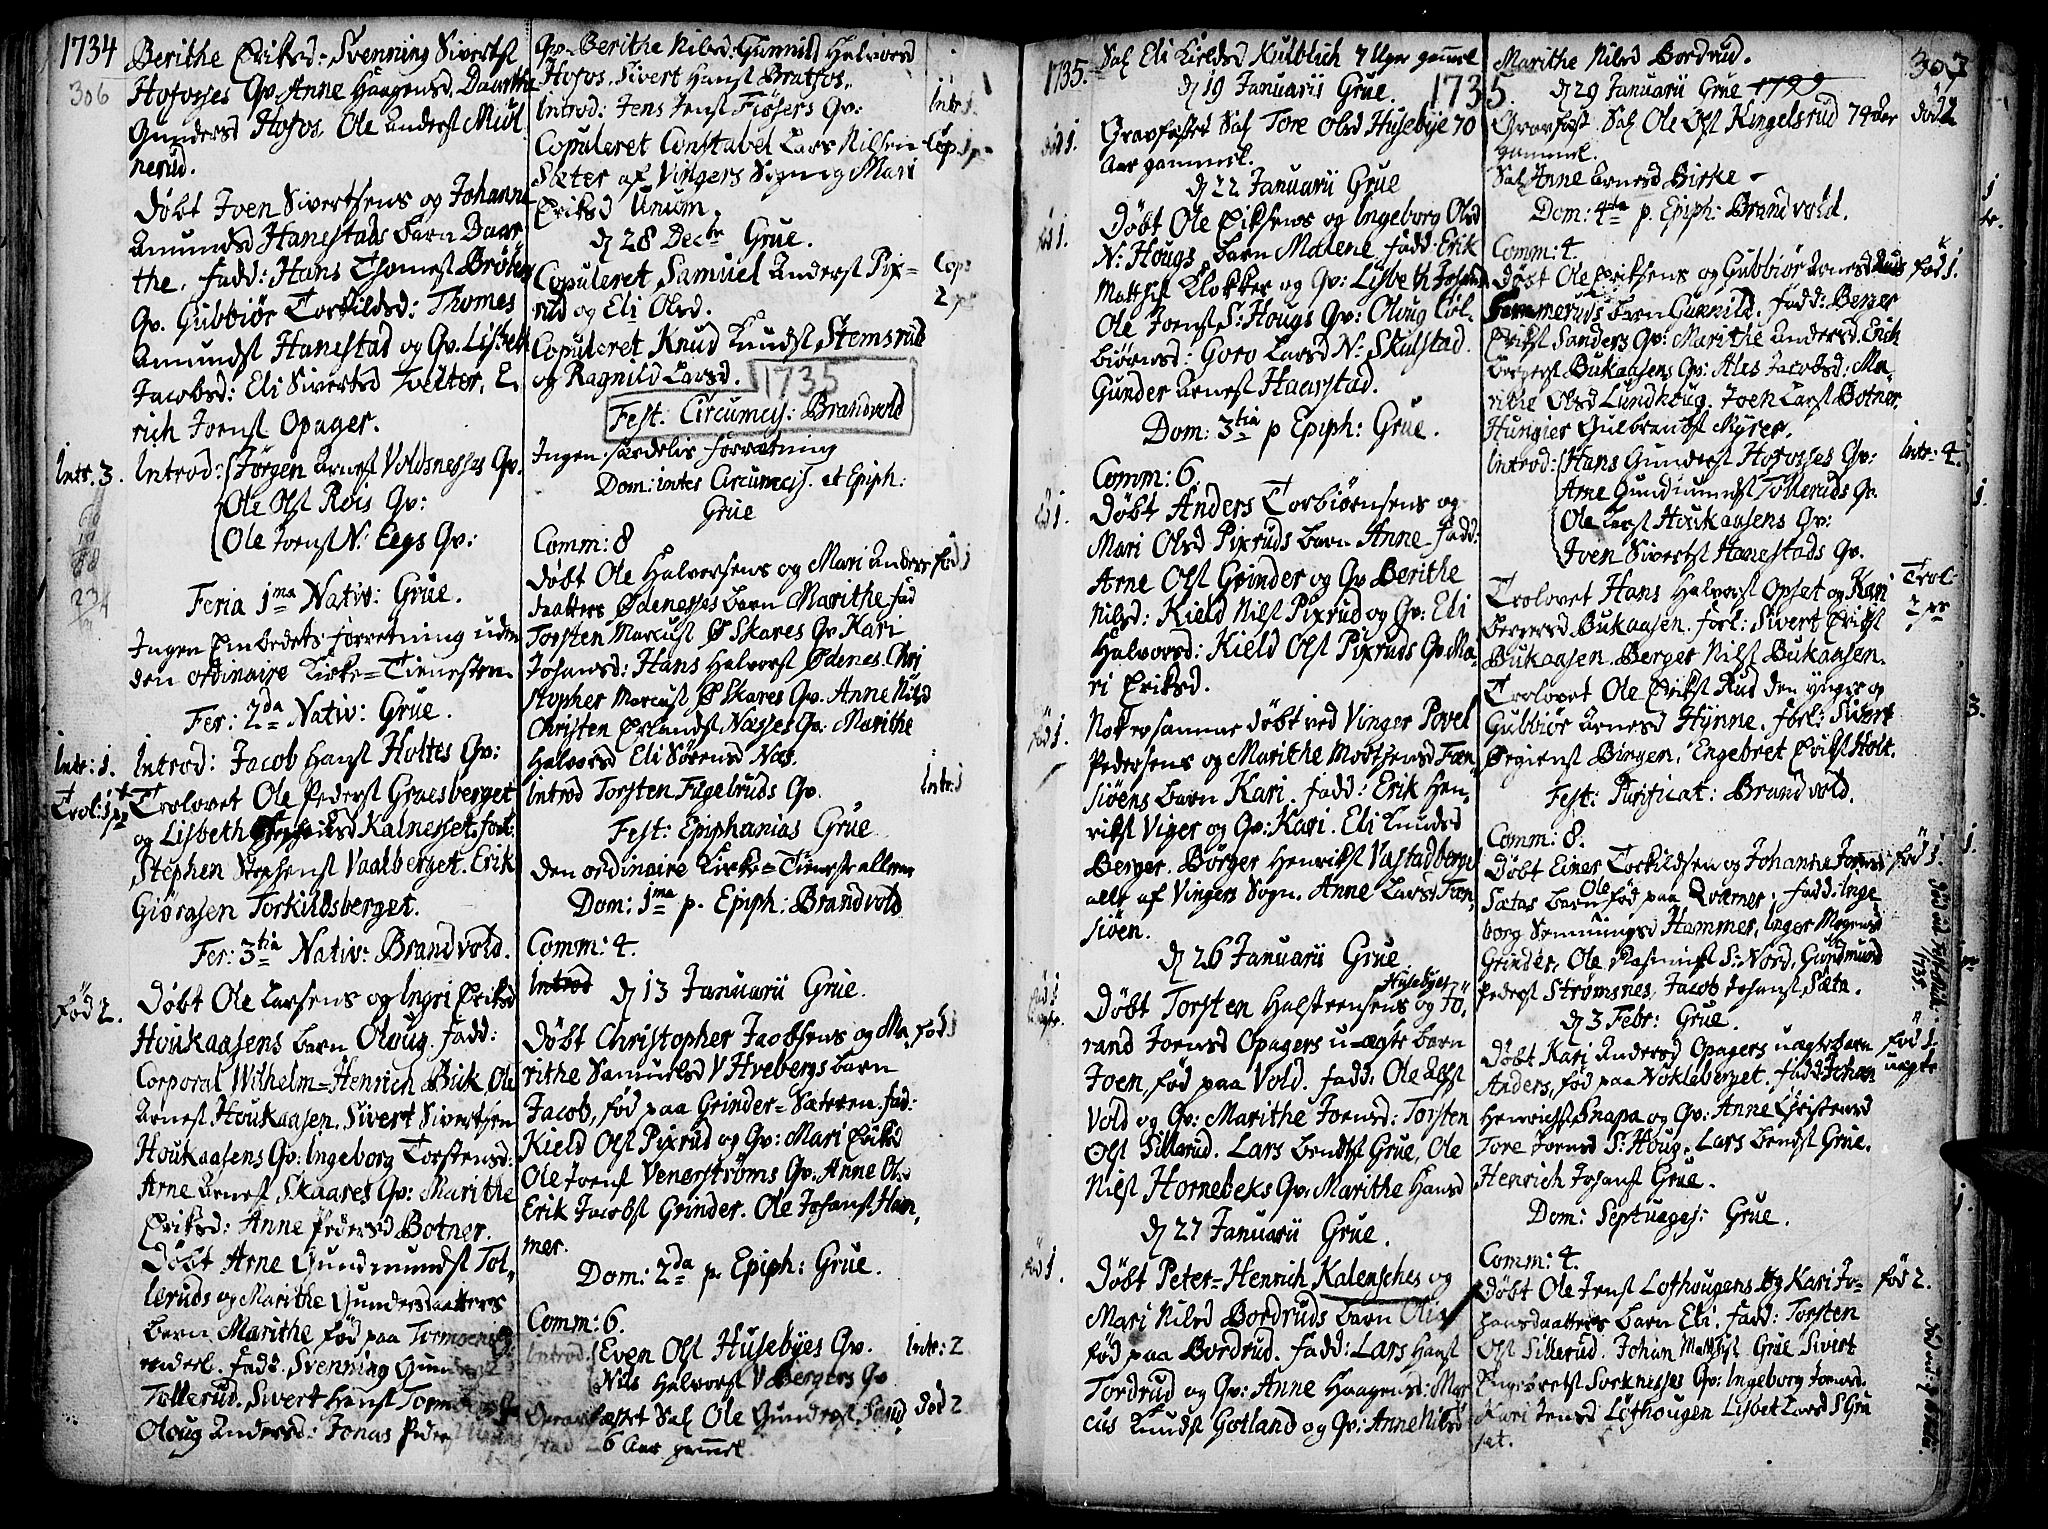 1734
306
Berithe Eriksd: Svenning Sivertsſ
Hofosses Qv. Anne Haagensd. Daarthe
Gundersd Hofos. Ole Andersſ Miøl
nerud.
Døbt Joen Sivertsens og Johanna
Amundsd Hanestads barn Daar
the. fadd: Hans Thomesſ Brøten
Qv. Gubbiør Torkildsd: Thomes
Amundsſ Hanestad og Qv. Lisbeth
Jacobsd: Eli Sivertsd Tvelter.
rich Joensſ Opager.
Intr: 3.
Introd: Jørgen Arnesſ Voldsnesses Qv.
Ole Olsſ Røis Qv:
Ole Joensſ N: Eegs Qv:
Feria 1ma Nativ: Grue.
Ingen Embedets forretning uden
den ordinaire Kirke=Tienesten.
Fer: 2da Nativ: Grue.
Intr: 1.
Introd: Jacob Hansſ Holtes Qv:
Trol: 1 pr
Trolovet Ole Pedersſ Graesberget
og Lisbeth Kalnesset, forl:
Stephen Stephensſ Vaalberget. Erik
Giørasen Torkildsberget.
Fer: 3tia Nativ: Brandvold.
fød 2.
Døbt Ole Larsens og Ingri Eriksd
Houkaasens barn Oloug. fadd:
Corporal Wilhelm=Henrich Bik, Ole
Arnesſ Houkaasen. Sivert Sivertsen
Houkaasens Qv: Ingeborg Torstensd:
Arne Arnesſ Skaares Qv: Marithe
Eriksd: Anne Pedersd Botner.
Døbt Arne Gundmundsſ Tol-
leruds og Marithe Gundersdaatters
barn Marithe fød paa Tormoens
enderl. fadd. Svenning Gundersſ
Tollerud. Sivert Hansſ Tormo
Oloug Andersd: Jonas Peder
Qv. Berithe Nilsd. Gunnild Halvorsd
Hofos. Sivert Hansſ Bratfos.
Introd: Jens Jensſ Fiøsers Qv:
Intr 1.
Copuleret Constabel Lars Nilsen
Cop. 1 p
Sæter af Vingers Sogn og Mari
Eriksd Unum.
d 28 Decbr Grue.
Copuleret Samuel Andersſ Pix=
rud og Eli Olsd.
Cop:
2 pr
Copuleret Knud Knudsſ Stemsrud
og Ragnild Larsd.
1735
Fest: Circumcis: Brandvold
Ingen særdelis forretning
Dom: inter Circumcis. et Epiph:
Grue
Comm: 8
Døbt Ole Halvorsens og Mari Anders
fød 1
daatters Ødenesses barn Marithe. fad
Torsten Marcusſ Ø Skares Qv. Kari
Johansd: Hans Halvorsſ Ødenes. Chri
stopher Marcusſ Ø Skares Qv. Anne Nilsd
Christen Erlandsſ Næsses Qv: Marithe
Halvorsd Eli Sørensd Næs.
Introd Torsten Fugelruds Qv.
Intr: 1
Fest: Epiphanias Grue
den ordinaire Kirke=Tieneste allene
Dom: 1ma p. Epiph: Brandvold
Comm: 4.
Introd
d 13 Januarii Grue.
Døbt Christopher Jacobsens og Ma-
fød 1
rithe Samuelsd V Hvebergs barn
Jacob, fød paa Grinder=Sæteren. fad:
Kield Olsſ Pixrud og Qv: Mari Eriksd
Ole Joensſ Venerstrøms Qv. Anne Ols
Erik Jacobsſ Grinder. Ole Johansſ Ham
mer.
Dom: 2da p. Epiph: Grue.
Comm: 6.
Introd: Even Olsſ Husebyes Qv.
Intr: 2
Nils Halvorsſ V Bergers Qv
Gravfæstet Sal Ole Gundersſ
død 2
6 Aar gammel
1735.
Sal Eli Kieldsd Kulblich 7 Uger gammel
d 19 Januarii Grue.
1735.
død 1.
Gravfæstet Sal Tore Olsd Husebye 70
Aar gammel.
d 22 Januarii Grue
fød 1.
Døbt Ole Eriksens og Ingeborg Olsd
N: Hougs barn Malene. fadd: Erik
Matthisſ Klokker og Qv: Lisbeth Johans
Ole Joensſ S: Hougs Qv: Oloug Col-
biørnsd: Goro Larsd N: Skulstad.
Gunder Arnesſ Haarstad.
Dom: 3tia p Epiph: Grue.
Comm: 6.
fød 1.
Døbt Anders Torbiørnsens og
Mari Olsd Pixruds barn Anne. fadd:
Arne Olsſ Grinder og Qv Berithe
Nilsd: Kield Nilsſ Pixrud og Qv: Eli
Halvorsd: Kield Olsſ Pixruds Qv. Ma-
ri Eriksd.
fød 1.
Nok er samme døbt ved Vinger Povel
Pedersens og Marithe Mortensd Tæn
siøens barn Kari. fadd: Erik Hen-
riksſ Viger og Qv: Kari. Eli Knudsd
Berger. Børger Henriksſ Vastadberg
alle af Vingers Sogn. Anne Larsd Tæn-
siøen.
d 26 Januarii Grue
fød 1.
uægte.
Døbt Torsten Halsteensens Husebyes og Jø-
rand Joensd Opagers uægte barn
Joen, fød paa Vold. fadd. Ole
Vold og Qv: Marithe Joensd: Torsten
Olsſ Sillerud. Lars Bendtsſ Grue, Ole
Nilsſ Hornebeks Qv: Marithe Hansd
d 27 Januarii Grue.
fød 1.
Døbt Peter=Henrich Kalensches og
Mari Nilsd Bordruds barn Olia
fød paa Bordrud. fadd: Lars Hansſ
Tordrud og Qv: Anne Haagensd: Mar
cus Knudsſ Gotland og Qv: Anne Nilsd
Marithe Nilsd Bordrud.
307
d 29 Januarii Grue
Gravfæst. Sal Ole Olsſ Kingelsrud 74 aar
død 2
gammel.
Sal Anne Arnesd Birke
Dom: 4ta p. Epiph: Brandvold.
Comm: 4.
Døbt Ole Eriksens og Gubbiør Arnesd
fød 1.
Sommeruds barn Gunnild. fadd: Berger
Eriksſ Sanders Qv: Marithe Andersd. Erich
Bergersſ Bukaasens Qv: Ales Jacobsd: Ma-
rithe Olsd Lundhoug. Joen Larsſ Botner.
Hungier Gulbrandsſ Myrer.
Introd: Hans Gundersſ Hofosses Qv:
Intr: 4.
Arne Gundmundsſ Tolleruds Qv.
Ole Larsſ Houkaasens Qv:
Joen Sivertsſ Hanestads Qv.
Trolovet Hans Halvorsſ Opset og Kari
Trol:
2 pr
Bergersd Bukaasen. forl: Sivert Eriksſ
Bukaasen. Berger Nilsſ Bukaasen.
Trolovet Ole Eriksſ Rud den yngre og
Gubbiør Arnesd Hynne. forl: Sivert
Ørgiensſ Bingen, Engebret Eriksſ Holt.
Fest: Purificat: Brandvold.
Comm: 8.
Døbt Einer Torkildsen og Johanne Joensd
fød 1.
Sætas barn Ole fød paa Qværner. fadd: Inge
borg Svenningsd Hammer, Inger Mogensd
Grinder, Ole Rasmusſ S: Nord, Gundmund
Pedersſ Strømsnes, Jacob Johansſ Sæta.
d 3 Febr: Grue.
Døbt Kari Andersd Opagers uægte barn
fød 1.
uægte
Anders, fød paa Nøkleberget. fadd: Johan
Henrichsſ Snapa og Qv: Anne Christensd
Tore Joensd S: Houg. Lars Bendsſ Grue.
Henrich Johansſ Grue.
Dom: Septuages: Grue.
Comm: 4.
Døbt Ole Jensſ Løthougens og Kari Jo-
fød 2.
hansdaatters barn Eli. fadd: Torsten
Olsſ Sillerud. Johan Matthisſ Grue Sivert
Engebretsſ Sorknesses Qv: Ingeborg Joensd.
Kari Jensd Løthougen Lisbet Larsd S Gru
set.